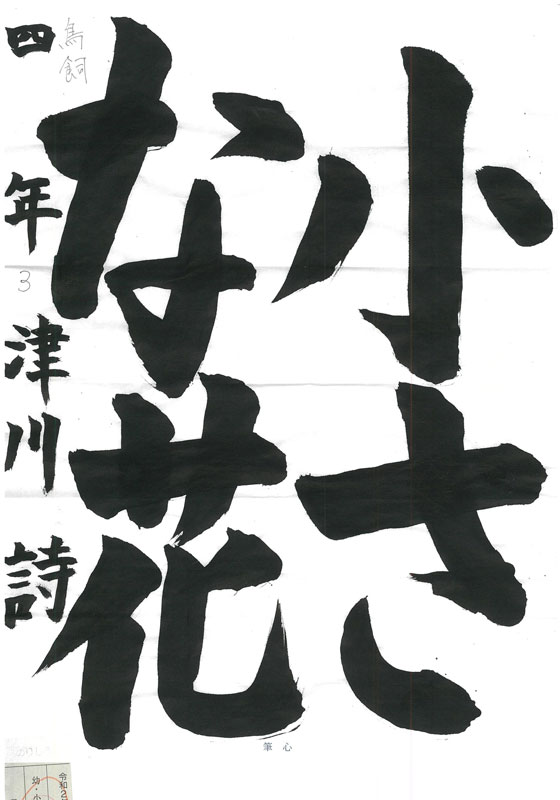 小さ
な花
四年 津川 詩
鳥飼
3
筆心
令和2
幼・小